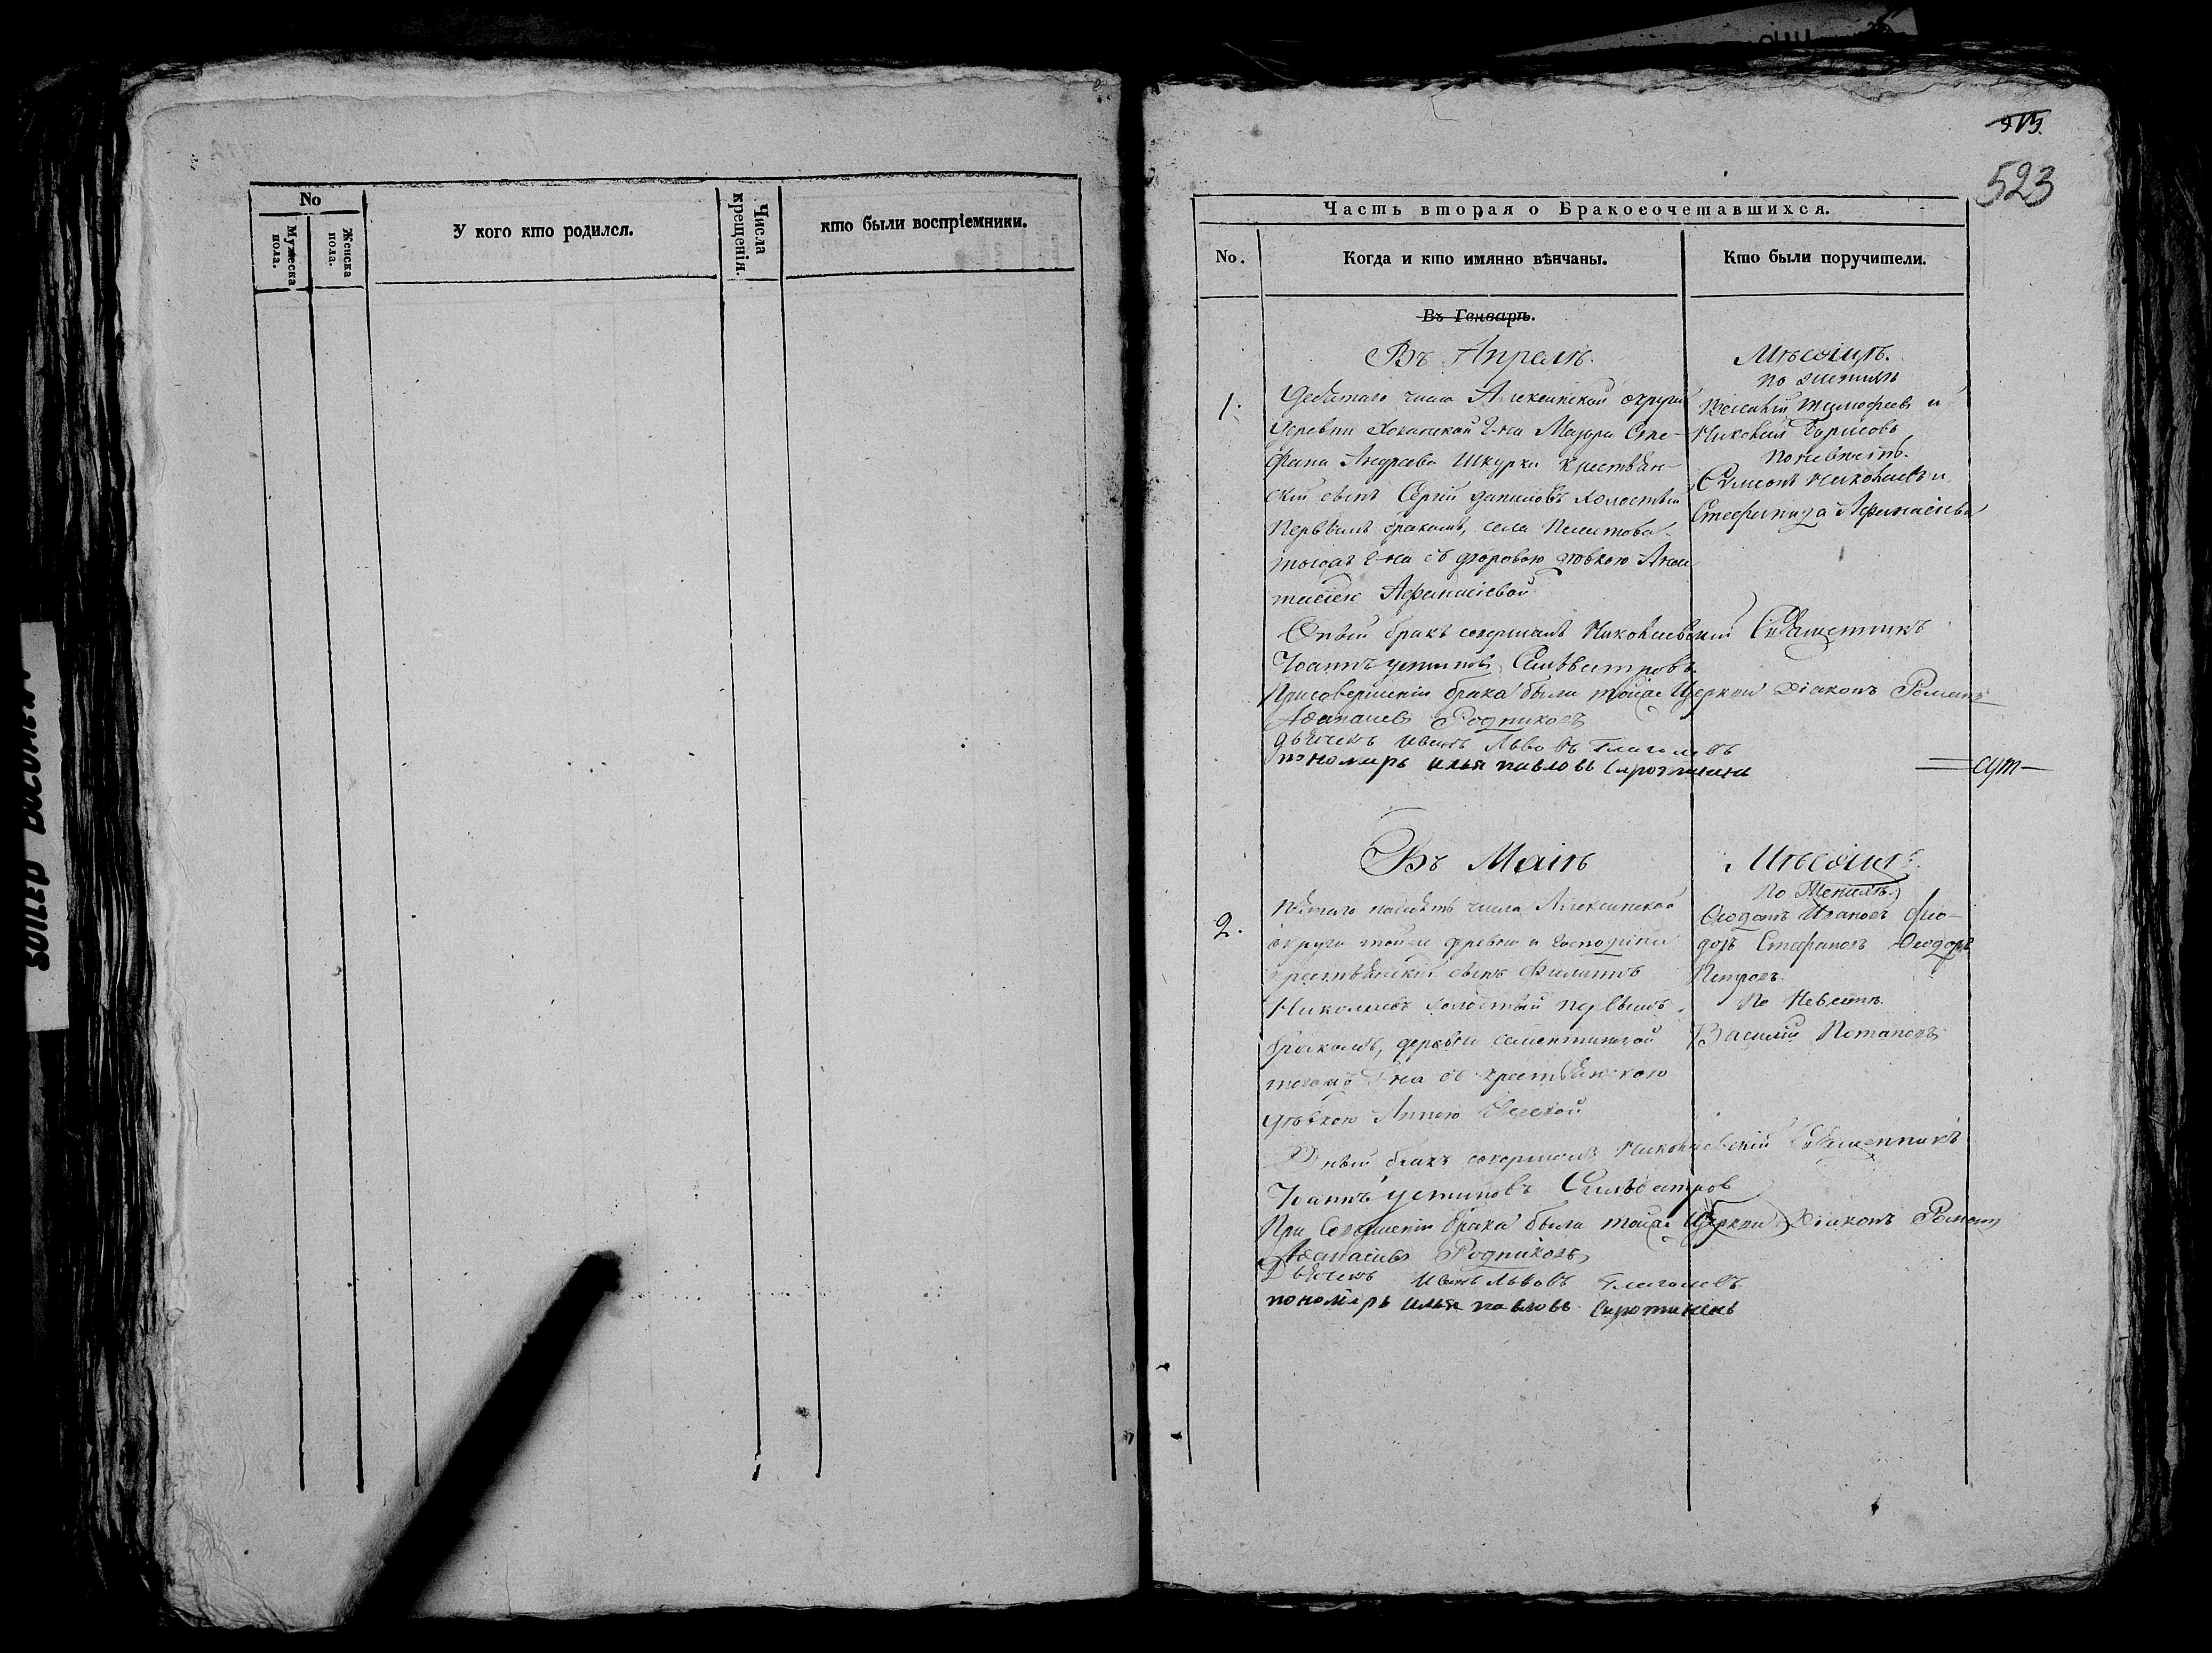 No
Мужеска пола.
Женска пола.
У кого кто родился.
Числа крещенія.
кто были воспріемники.
523
Часть вторая о Бракосочетавшихся.
No.
Когда и кто имянно вѣнчаны.
Кто были поручители.
Въ Генварѣ.
Въ Апрелѣ. Мѣсяцѣ.
1.
Девятаго числа Алексинской округи
деревни Г-на Маіора Сте-
фана Андреева Шкурки крестьян-
скій сынъ Сергій Даниловъ холостый
первымъ бракомъ, села
тогожъ Г-на съ дворовою дѣвкою Анас
тасіею Афанасіевой
Тимофеевъ и
Николай Борисовъ
по невѣстѣ.
Симеонъ Николаевъ и
Афанасіевъ
Оный бракъ совершалъ Николаевскій Священникъ
Іоаннъ Устиновъ Сильвестровъ
При совершеніи брака были тойже Церкви Діаконъ Романъ
Афанасьевъ Родниковъ
дьячекъ Иванъ Львовъ Глаголевъ
пономарь илья павловъ Сиротининъ
Въ Маіѣ Мѣсяцѣ.
2.
числа Алексинской
округи тойже деревни и Господина
крестьянскій сынъ Филиппъ
Николаевъ холостый первымъ
бракомъ, деревни
тогожъ Г-на съ крестьянскою
дѣвкою Анною
По Женихѣ.
Ѳеодотъ Ивановъ Ѳео-
доръ Стефановъ Ѳеодоръ
Петровъ.
По Невѣстѣ.
Василій Потаповъ
Оный бракъ совершалъ Николаевскій Священникъ
Іоаннъ Устиновъ Сильвестровъ
При Совершеніи брака были тойже Церкви Діаконъ Романъ
Афанасьевъ Родниковъ
Дьячекъ Иванъ Львовъ Глаголевъ
пономарь илья павловъ Сиротининъ
SOILED DOCUMENT